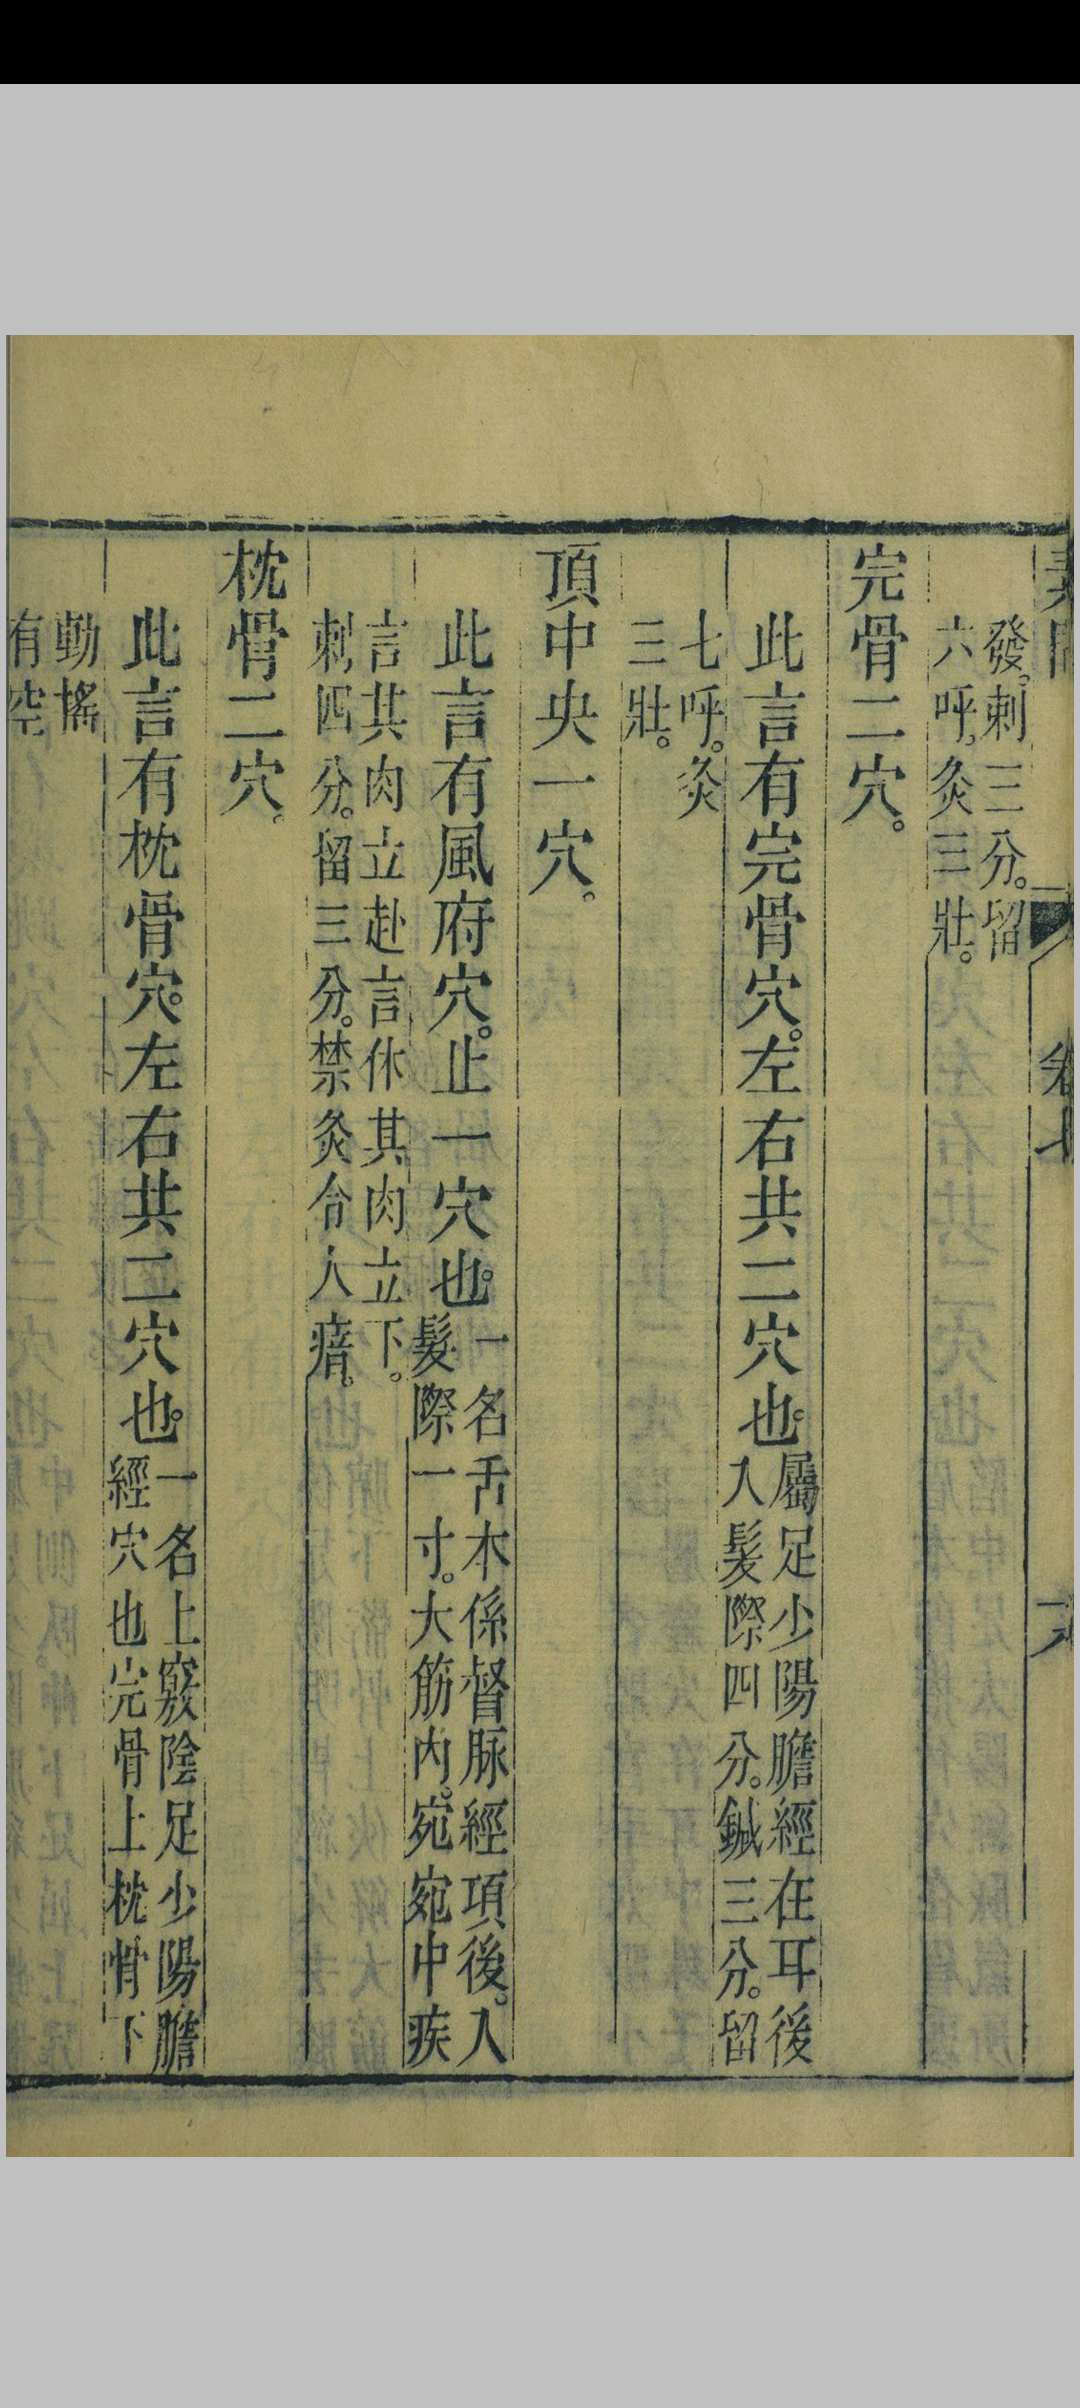 發。刺三分。留
六呼。灸三壯。
完骨二穴。
此言有完骨穴。左右共二穴也。屬足少陽膽經在耳後
入髮際四分。鍼三分。留
七呼。灸
三壯。
頂中央一穴。
此言有風府穴。止一穴也。一名舌本係督脉經項後。入
髮際一寸。大筋內。宛宛中疾
言其肉立赴言休其肉立下。
刺四分。留三分。禁灸令人瘖。
枕骨二穴。
此言有枕骨穴。左右共二穴也。一名上竅陰足少陽膽
經穴也完骨上枕骨下
動搖
有空